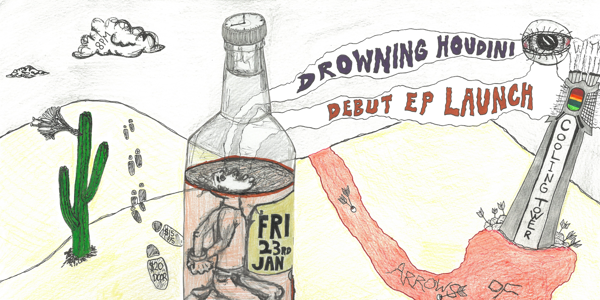 DROWNING HOUDINI
DEBUT EP LAUNCH
COOLING TOWER
FRI
23RD
JAN
$20
DOOR
ARROWS OF